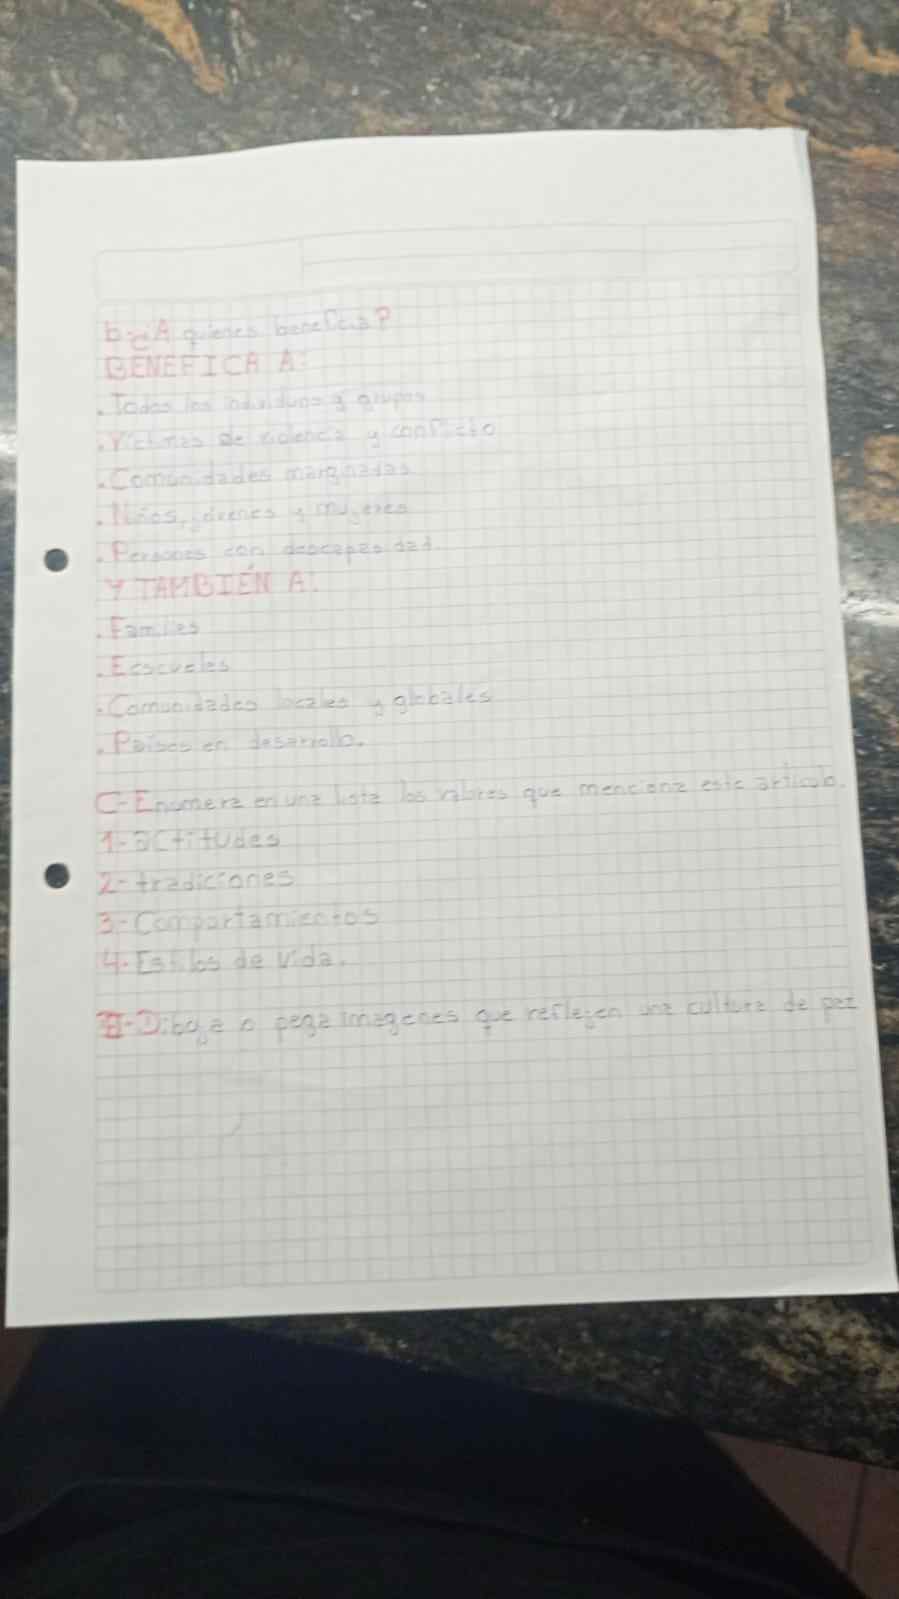 b-¿A quienes beneficia?
BENEFICA A:
. Todos los individuos y grupos
. Victimas de violencia y conflicto
. Comunidades marginadas
. Niños, jóvenes y mujeres
. Personas con descapasidad.
Y TAMBIÉN A:
. Familias
. Ecscuelas
. Comunidades locales y globales
. Paises en desarrollo.
C- Enumera en una lista los valores que menciona este articulo.
1- actitudes
2- tradiciones
3- Comportamientos
4- Estilos de vida.
- Dibuja o pega imagenes que reflejen una cultura de paz